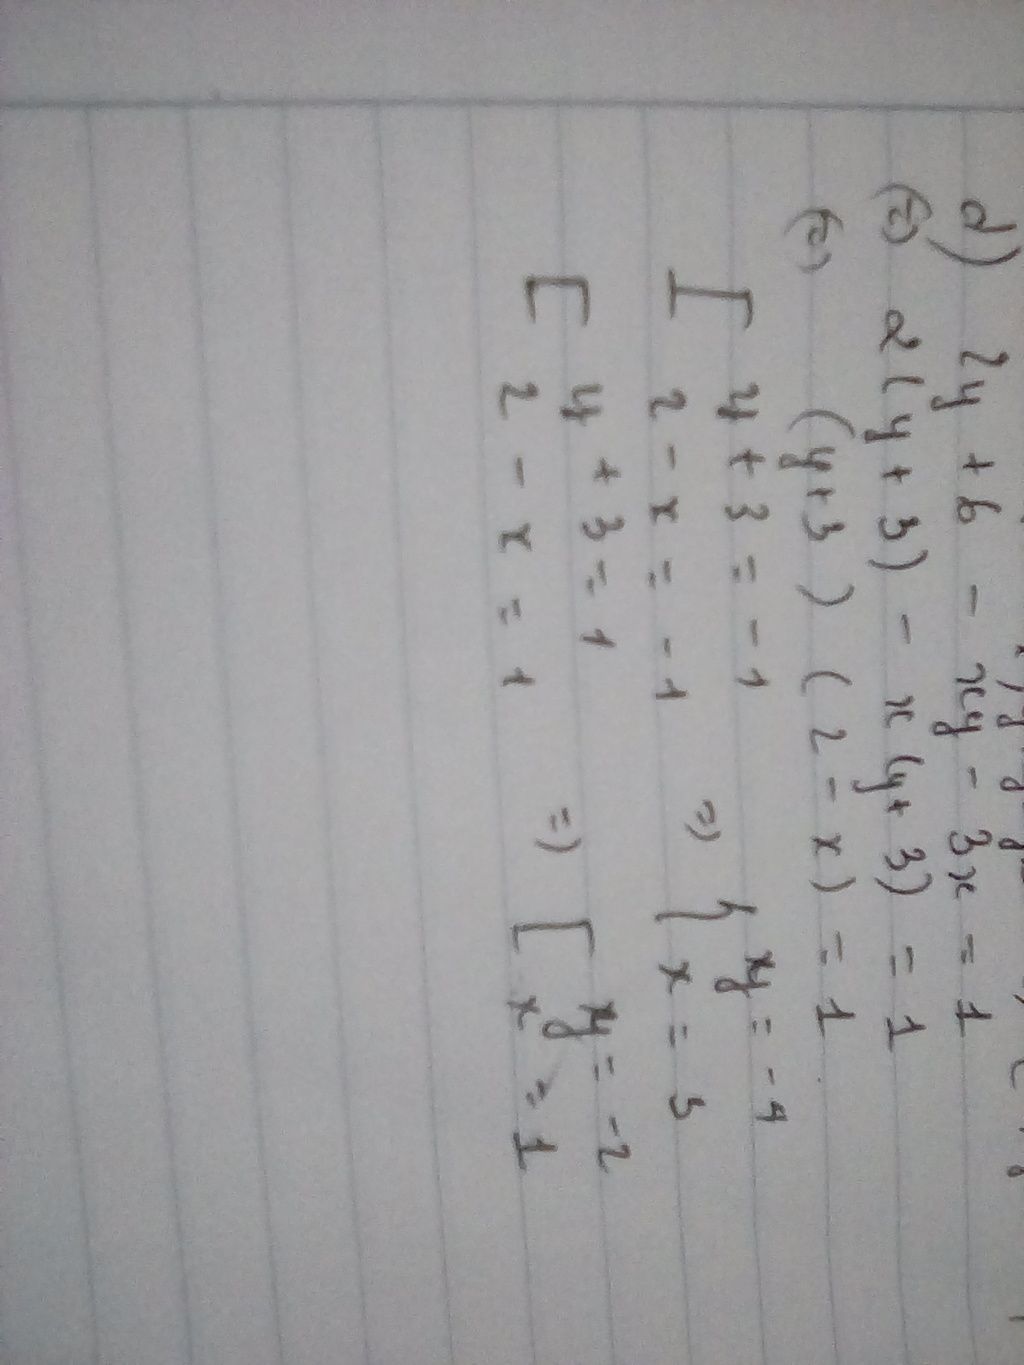 d) 2y + 6 - xy - 3x = 1
(=) 2(y + 3) - x(y + 3) = 1
(=) (y+3) (2 - x) = 1
[ y + 3 = -1
2 - x = -1 => { y = -4
x = 3
[ y + 3 = 1
2 - x = 1 => [ y = -2
x = 1